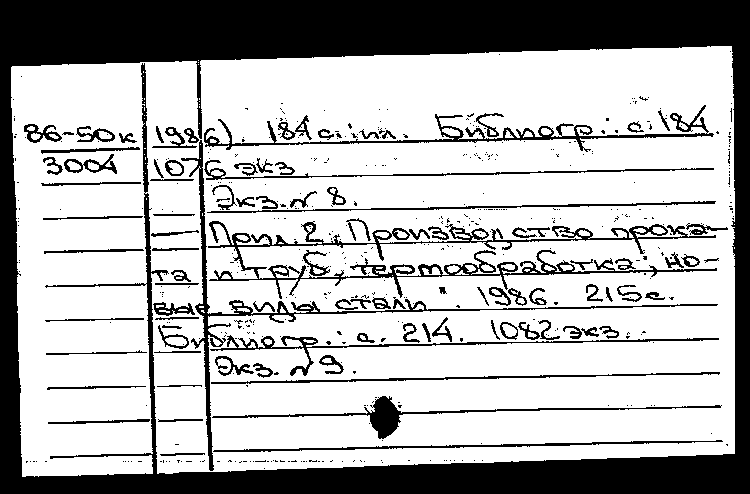 86-50к 1986). 184 с.: ил. Библиогр.: с. 184.
3004 1076 экз.
Экз. № 8.
Прил. 2 „Производство прока-
та и труб, термообработка; но-
вые виды стали". 1986. 215 с.
Библиогр.: с. 214. 1082 экз.
Экз. № 9.